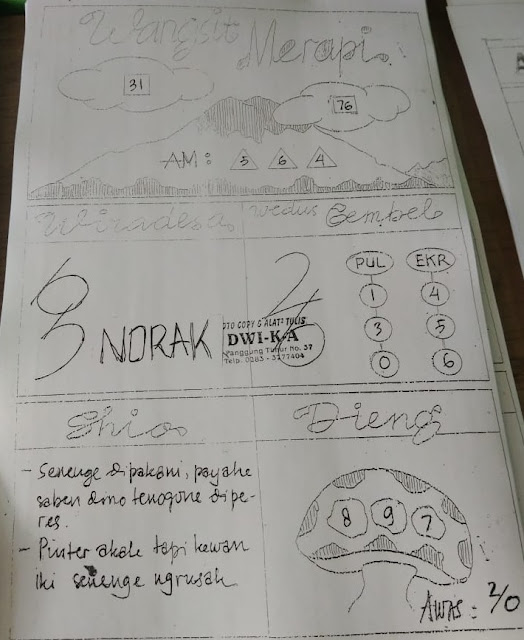 Wangsit Merapi
31
76
AM: 5 6 4
Wiradesa
Wedus Gembel
NORAK
FOTO COPY & ALAT² TULIS
DWI-KA
Telp. 0285 - 3277404
PUL EKR
1 4
3 5
0 6
Shio
Dieng
- Senenge dipakani, payahe
saben dino tenogone dipe-
res.
- Pinter akale tapi kewan
iki senenge ngrusak
8 9 7
AWAS : 2/0